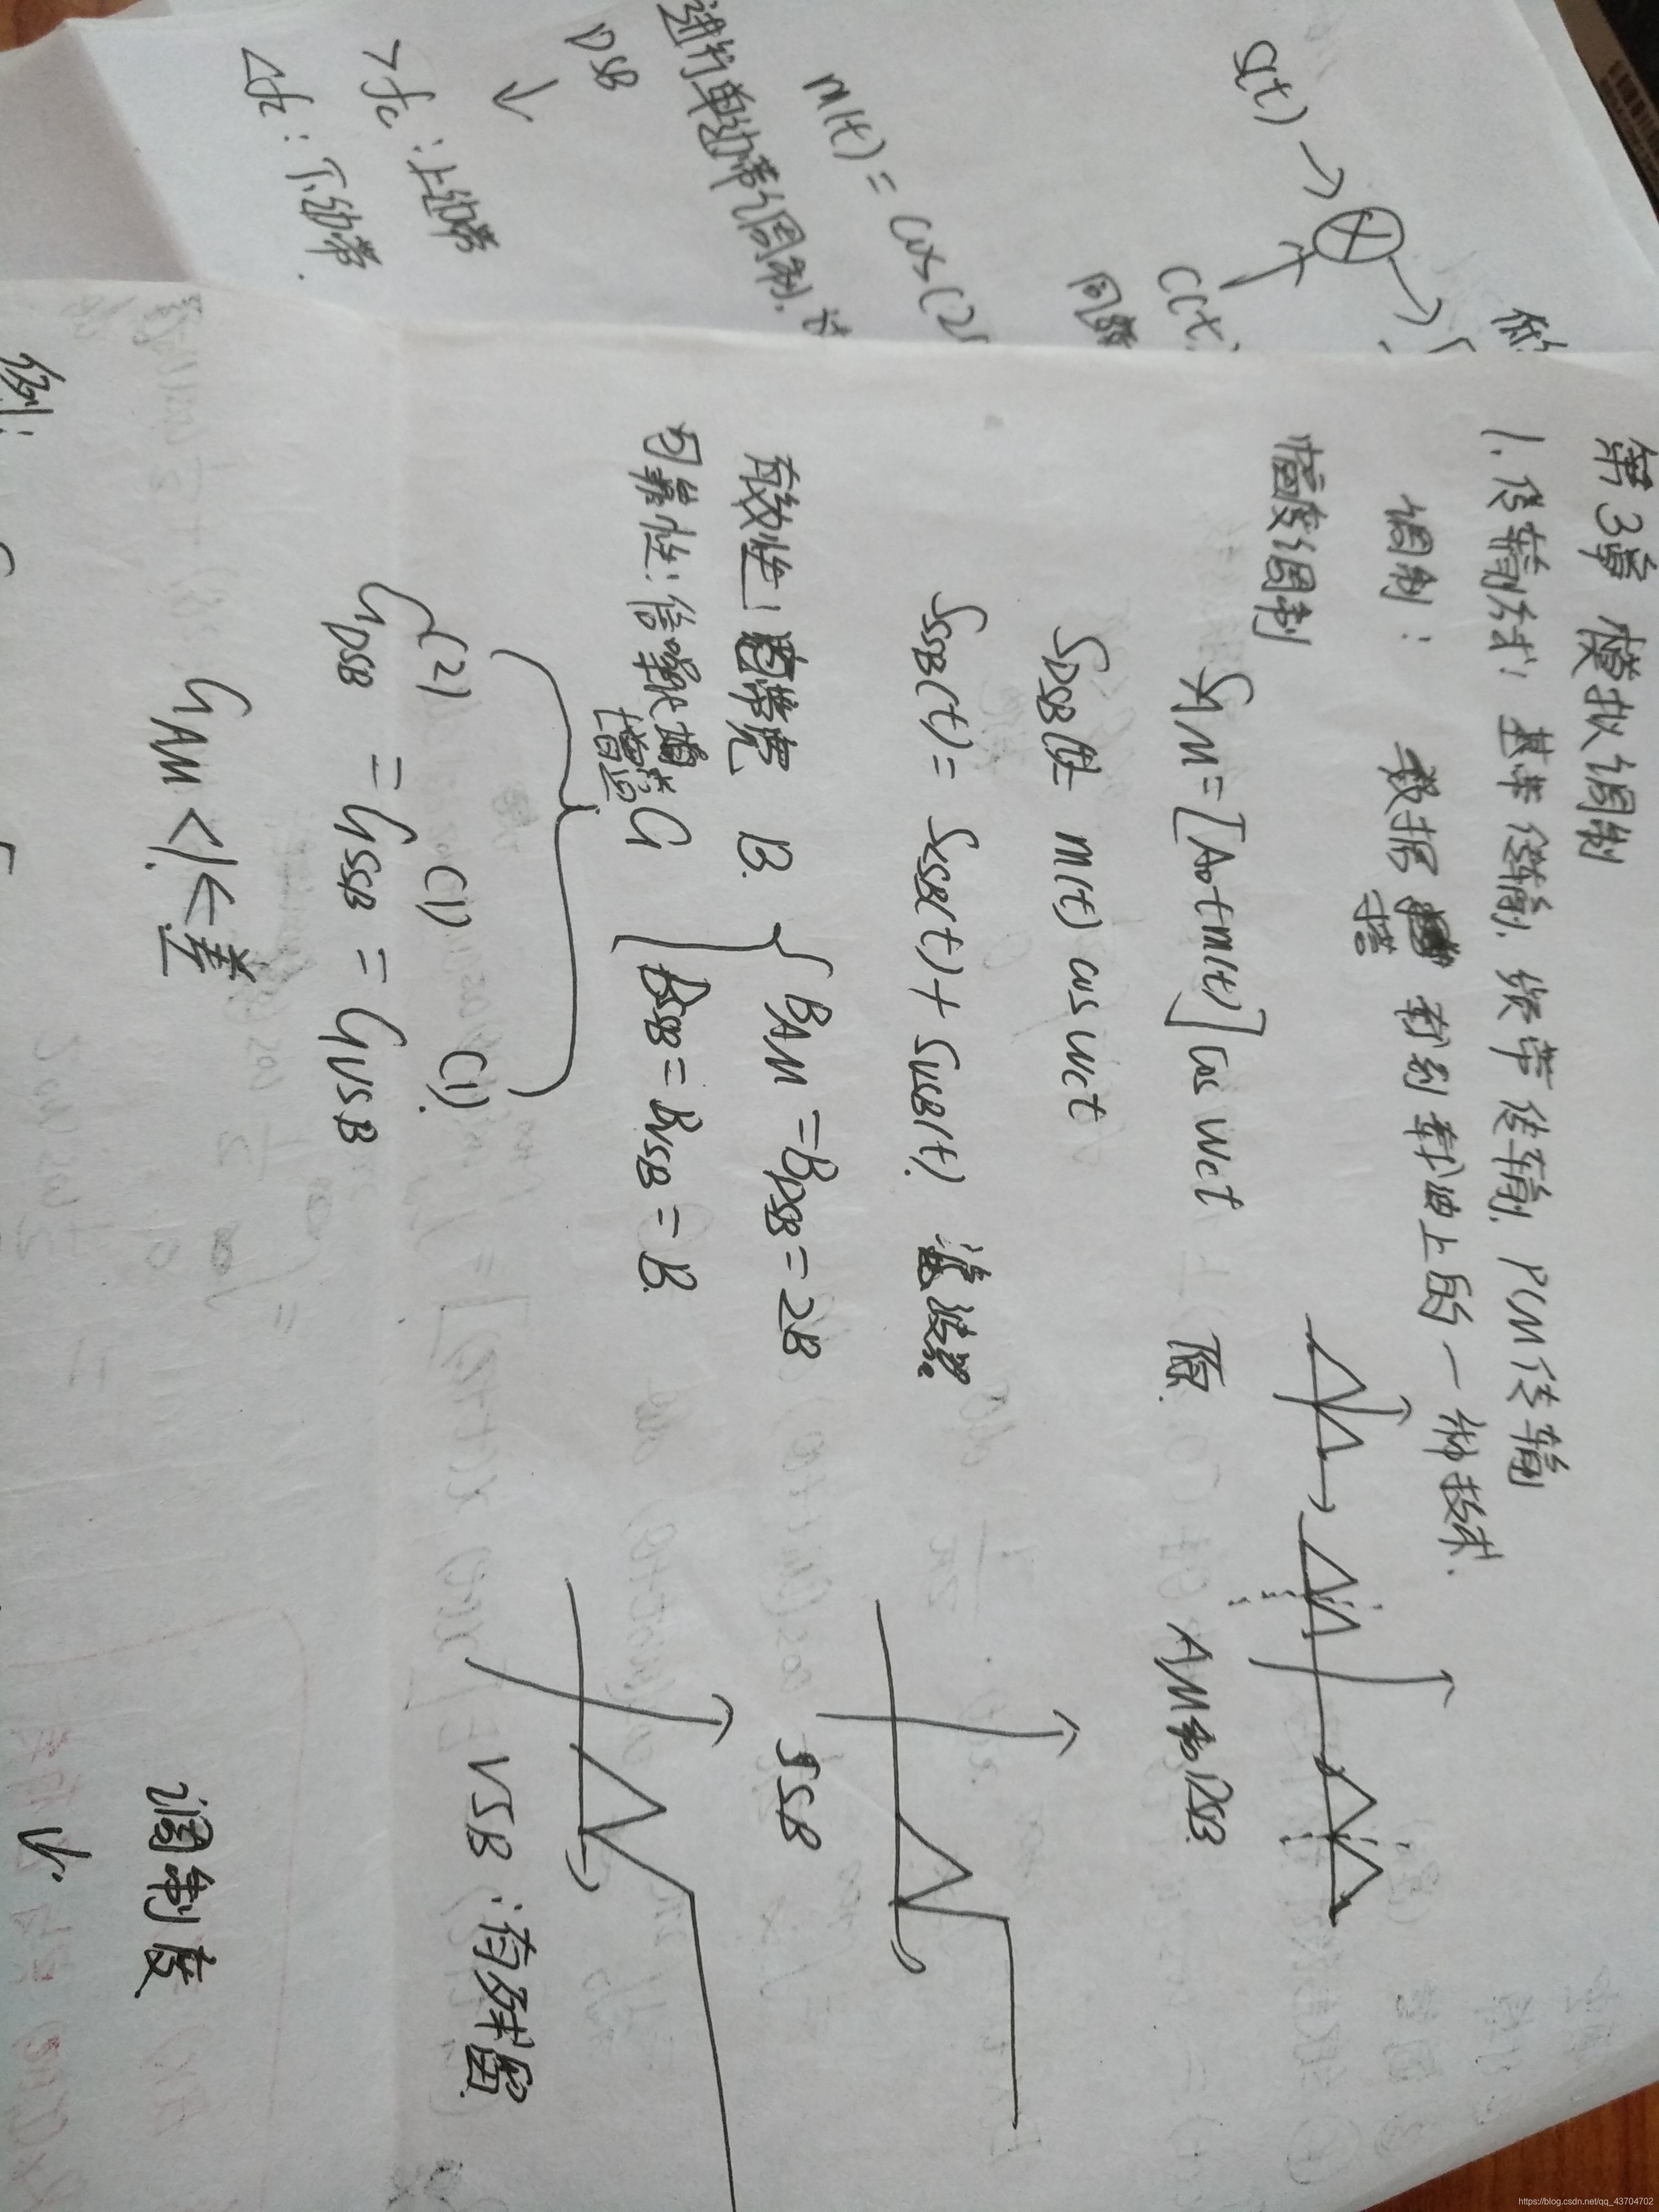 第3章 模拟调制
1. 传输方式: 基带传输, 频带传输, PCM传输
调制: 数据 搭 有到载波上的一种技术.
幅度调制
SAM=[A0+m(t)]cos wct
AM和DSB.
SDSB(t)= m(t) cos wct
SSSB(t)= SLSB(t)+SUSB(t) 滤波器
SSB
有效性: 带宽 B.
BAM=BDSB=2B
BSSB=BVSB=B.
可靠性: 信噪比增益G
VSB: 有残留
(2) (1) (1)
GDSB = GSSB = GVSB
GAM<1←差
调制度
例:
S(t)
C(t)
m(t) = cos(2
进行单边带调制.
DSB
>fc: 上边带
<fc: 下边带.
https://blog.csdn.net/qq_43704702